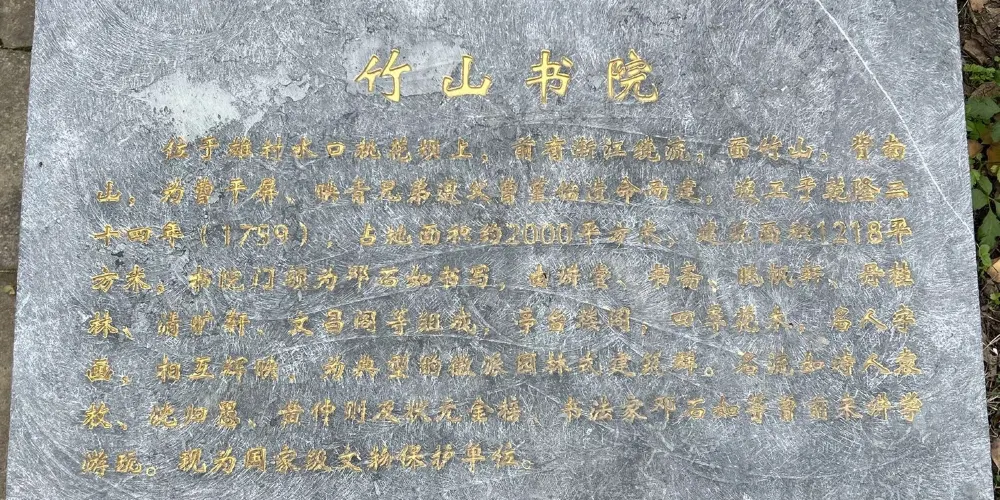 竹山书院
位于雄村水口桃花坝上，前有浙江绕流，面竹山，背枕
山，为曹干屏、映青兄弟遵父曹堇饴遗命而建，竣工于乾隆二
十四年（1759），占地面积约2000平方米，建筑面积1218平
方米，书院门额为邓石如书写，由讲堂、书斋、眺帆轩、丹桂
林、清旷轩、文昌阁等组成，亭台楼阁，四季花木，昌人字
画，相互辉映，为典型的徽派园林式建筑群。名流如诗人袁
牧、沈归愚、黄仲则及状元金榜、书法家邓石如等曾前来讲学
游玩。现为国家级文物保护单位。